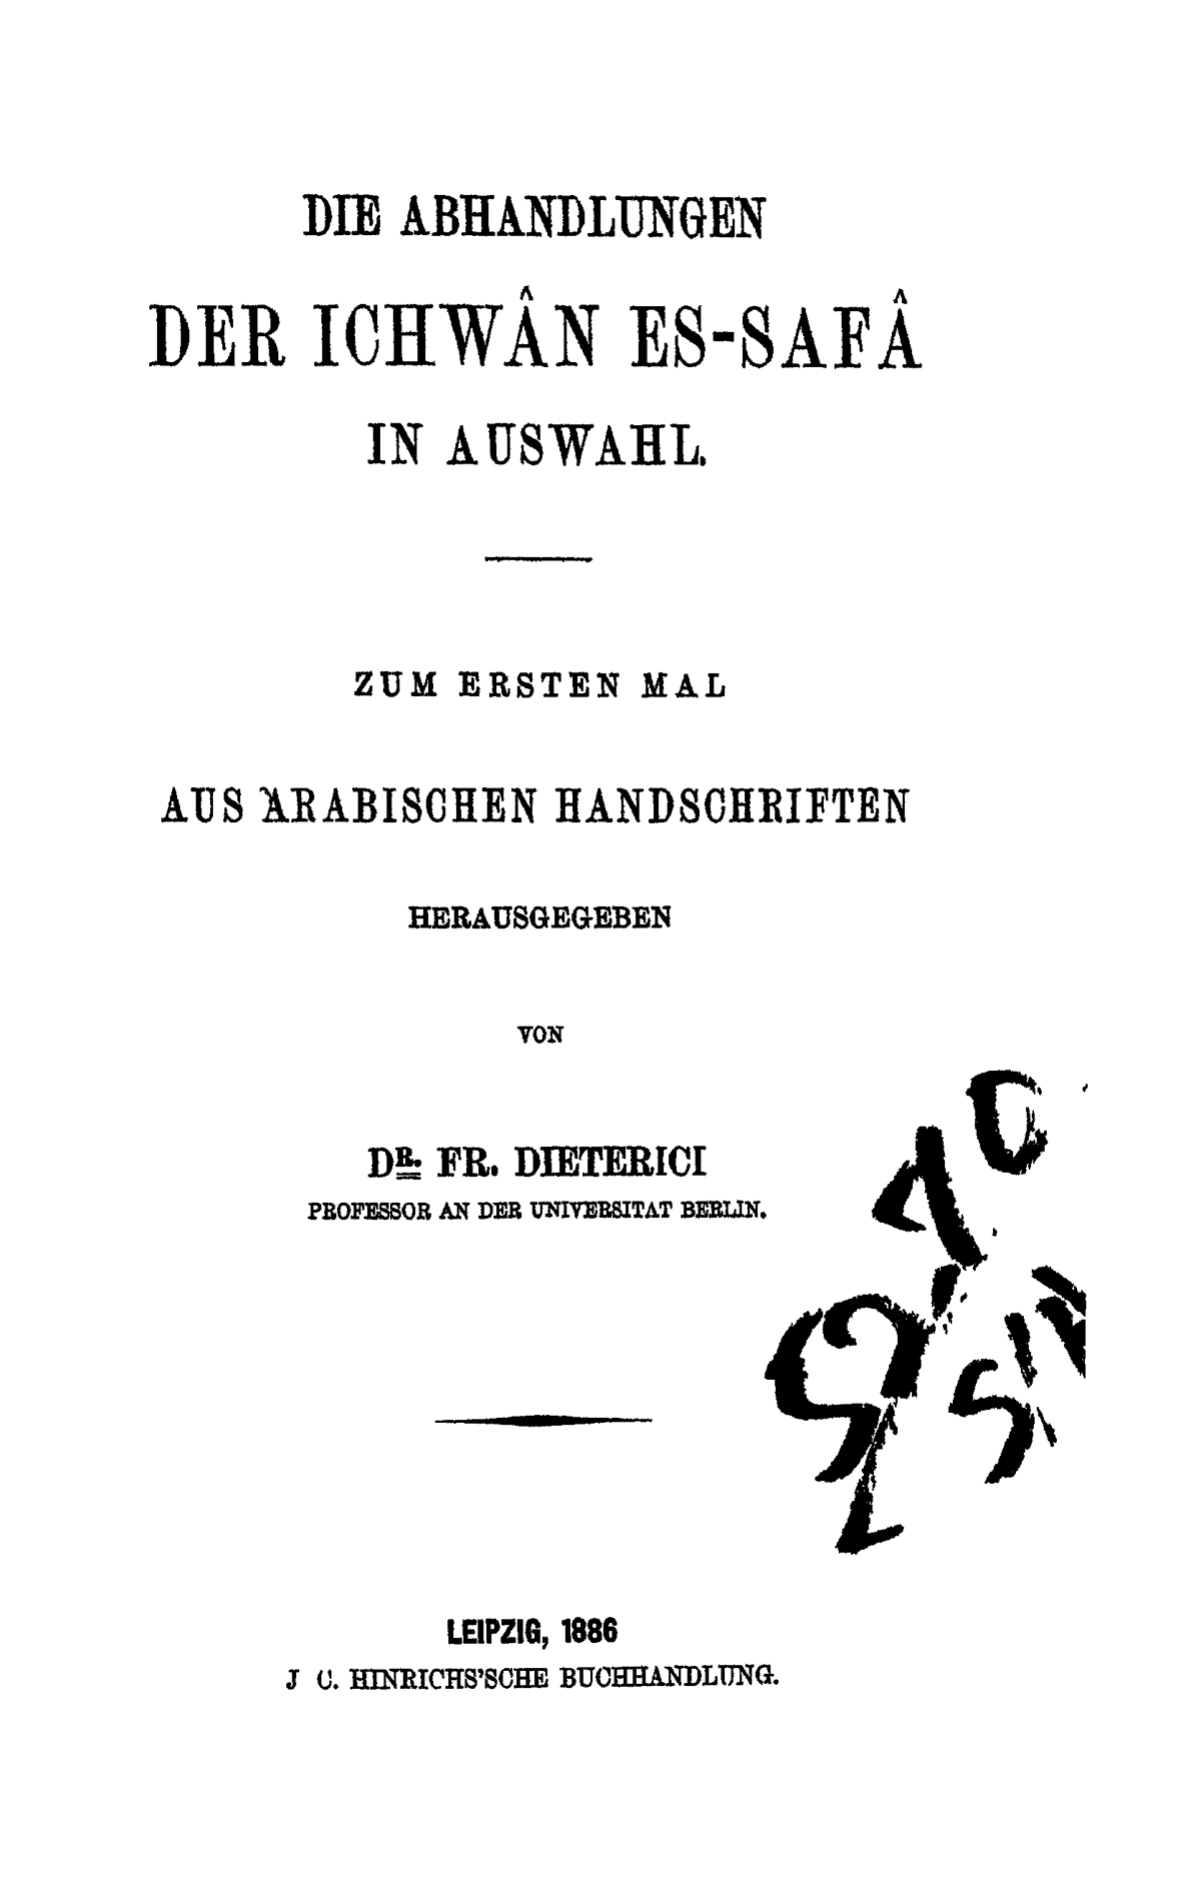 DIE ABHANDLUNGEN
DER ICHWÂN ES-SAFÂ
IN AUSWAHL.
ZUM ERSTEN MAL
AUS ARABISCHEN HANDSCHRIFTEN
HERAUSGEGEBEN
VON
DR. FR. DIETERICI
PROFESSOR AN DER UNIVERSITAT BERLIN.
LEIPZIG, 1886
J C. HINRICHS'SCHE BUCHHANDLUNG.